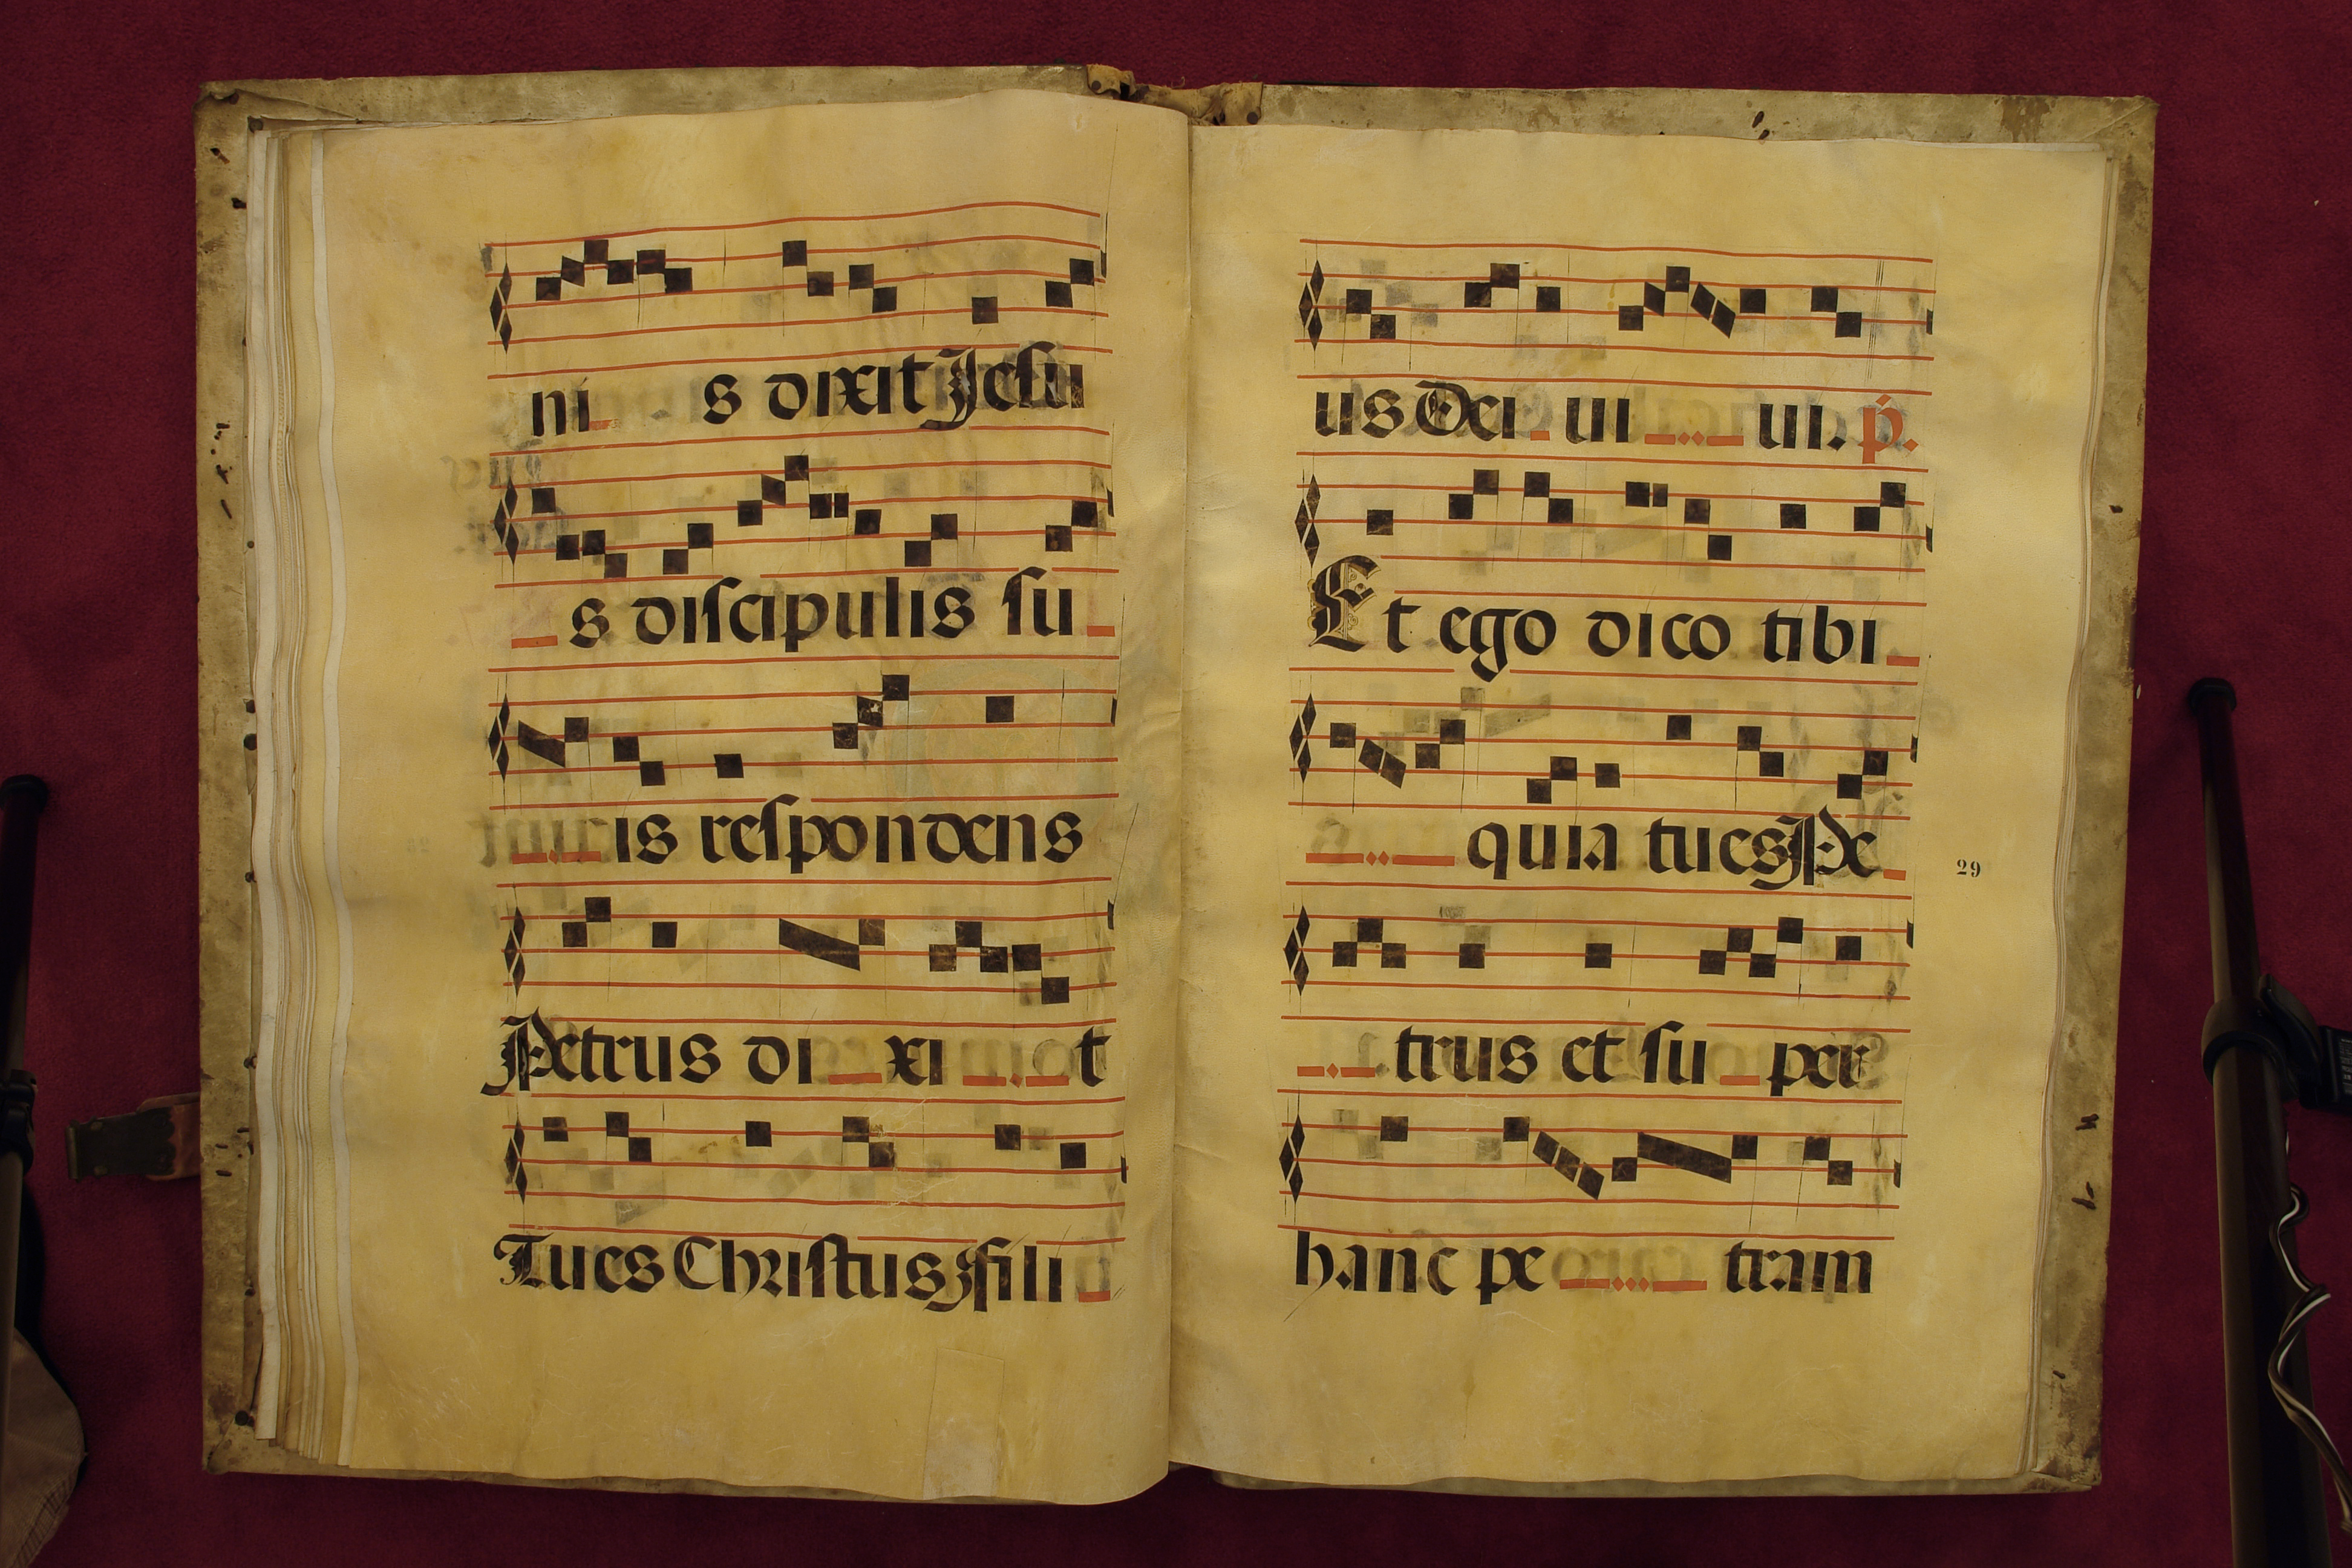 ni s dixit Jesu
s discipulis su
is respondens
Petrus di xi t
Tu es Christus, fili
us Dei ui ui. p.
Et ego dico tibi
quia tu es, Pe
trus et su per
hanc pe tram
29